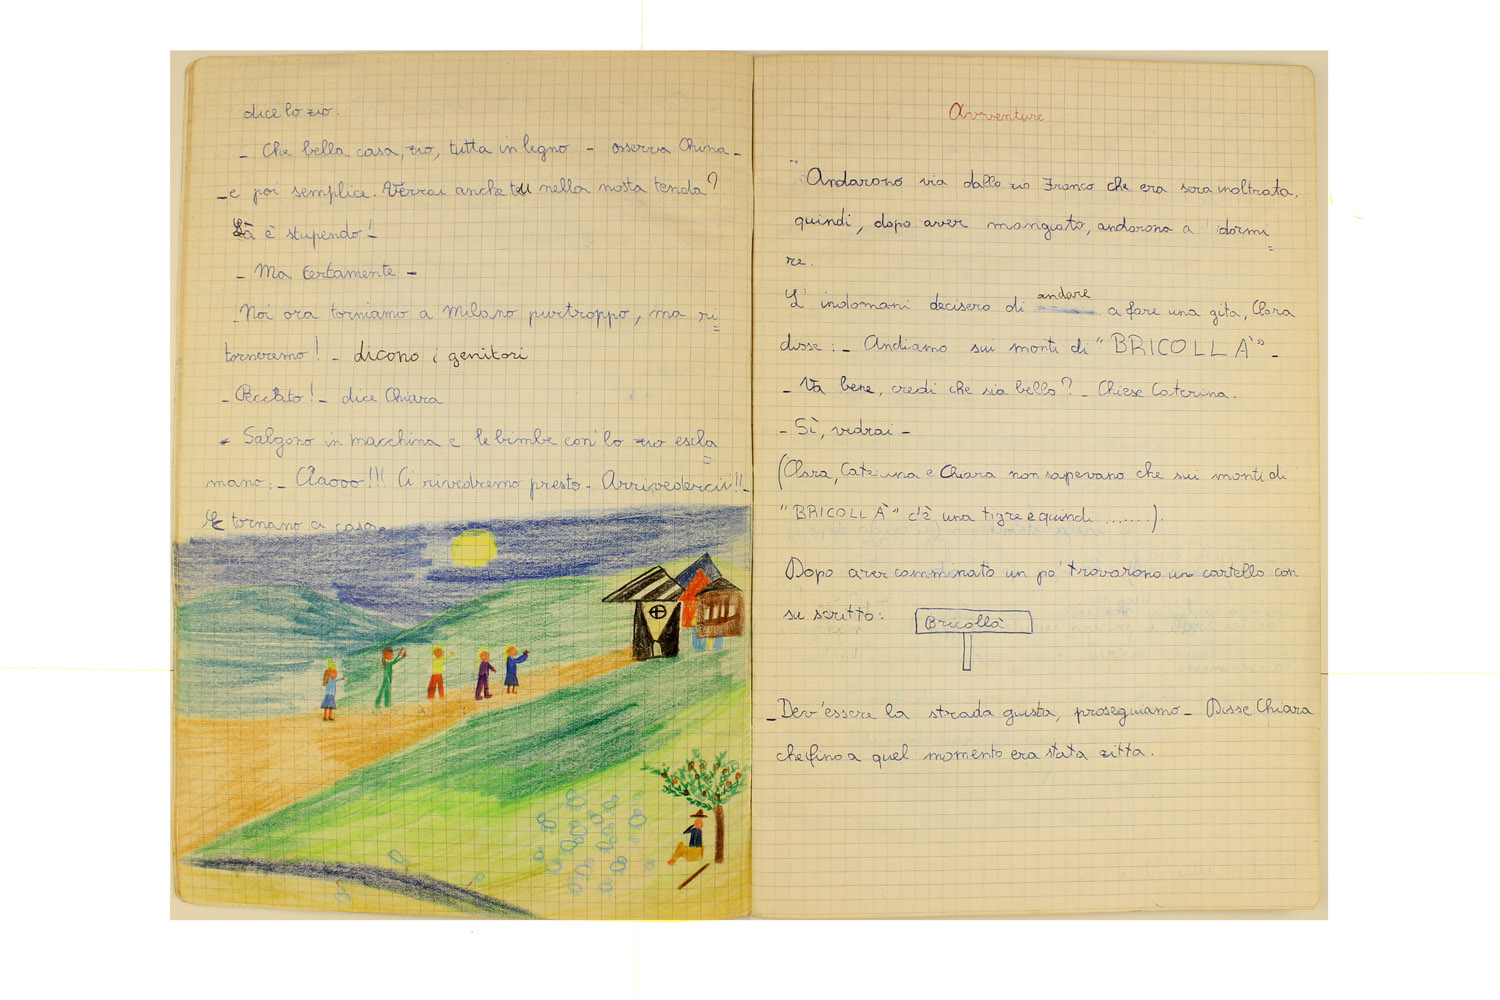 dice lo zio.
- Che bella casa, zio, tutta in legno - osserva China -
- e poi semplice. Verrai anche tu nella nosta tenda?
Là è stupendo!
- Ma certamente -
Noi ora torniamo a Milano purtroppo, ma ri=
torneremo! - dicono i genitori
- Peccato! - dice Chiara
- Salgono in macchina e le bimbe con lo zio escla=
mano: - Ciaooo!!! Ci rivedremo presto - Arrivederciii!! -
E tornano a casa.
Avventure
"Andarono via dallo zio Franco che era sera inoltrata,
quindi, dopo aver mangiato, andarono a dormi=
re.
L'indomani decisero di andare a fare una gita, Clara
disse: - Andiamo sui monti di "BRICOLLÀ" -
- Va bene, credi che sia bello? - Chiese Caterina.
- Sì, vedrai -
(Clara, Caterina e Chiara non sapevano che sui monti di
"BRICOLLÀ" c'è una tigre e quindi .......).
Dopo aver camminato un po' trovarono un cartello con
su scritto:
Bricollà
- Dev'essere la strada giusta, proseguiamo - Disse Chiara
che fino a quel momento era stata zitta.